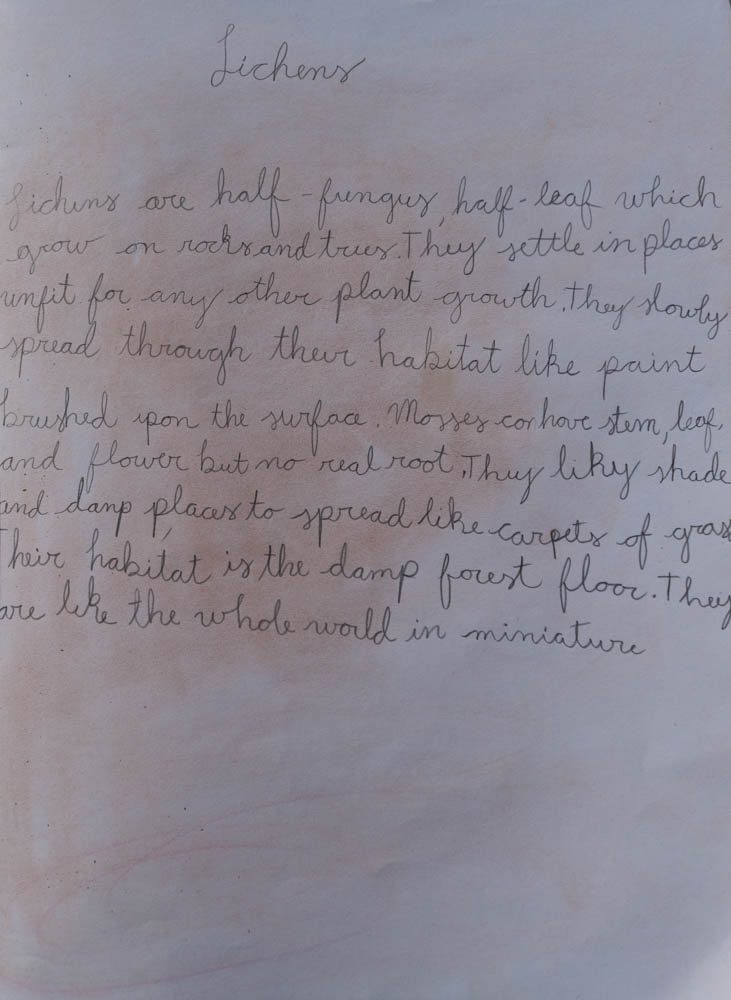 Lichens
Lichens are half-fungus, half-leaf which
grow on rocks and trees. They settle in places
unfit for any other plant growth. They slowly
spread through their habitat like paint
brushed upon the surface. Mosses can have stem, leaf,
and flower but no real root. They likey shade
and damp places to spread like carpets of grass
Their habitat is the damp forest floor. They
are like the whole world in miniature